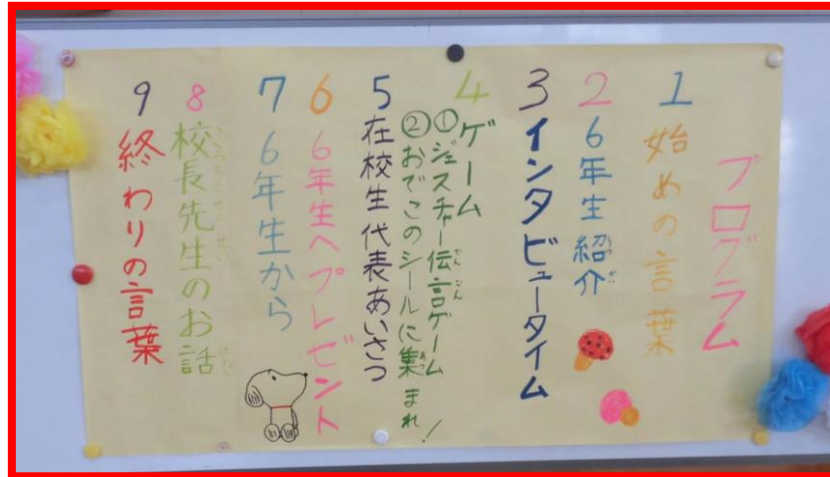 プログラム
1 始めの言葉
2 6年生紹介
3 インタビュータイム
4 ゲーム
①ジェスチャー伝言ゲーム
②おでこのシールに集まれ!
5 在校生代表あいさつ
6 6年生へプレゼント
7 6年生から
8 校長先生のお話
9 終わりの言葉